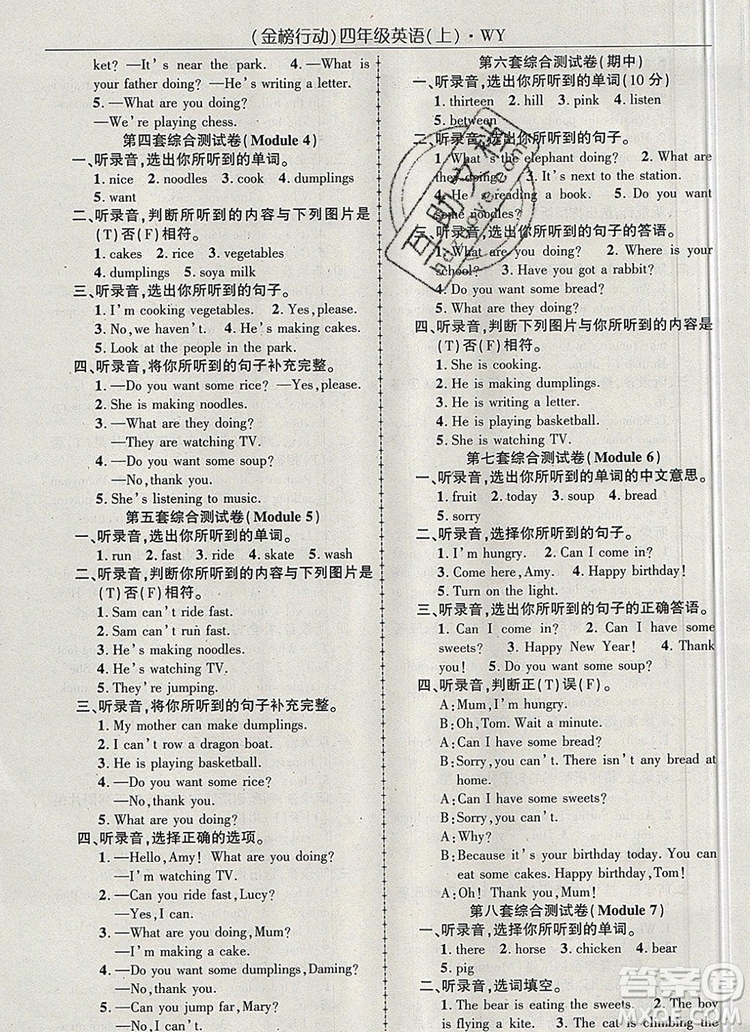 (金榜行动)四年级英语(上)·WY
ket? —It's near the park. 4. —What is
your father doing? —He's writing a letter.
5. —What are you doing?
—We're playing chess.
第四套综合测试卷(Module 4)
一、听录音,选出你所听到的单词。
1. nice 2. noodles 3. cook 4. dumplings
5. want
二、听录音,判断所听到的内容与下列图片是
(T)否(F)相符。
1. cakes 2. rice 3. vegetables
4. dumplings 5. soya milk
三、听录音,选出你所听到的句子。
1. I'm cooking vegetables. 2. Yes,please.
3. No,we haven't. 4. He's making cakes.
5. Look at the people in the park.
四、听录音,将你所听到的句子补充完整。
1. —Do you want some rice? —Yes,please.
2. She is making noodles.
3. —What are they doing?
—They are watching TV.
4. —Do you want some soup?
—No,thank you.
5. She's listening to music.
第五套综合测试卷(Module 5)
一、听录音,选出你所听到的单词。
1. run 2. fast 3. ride 4. skate 5. wash
二、听录音,判断你所听到的内容与下列图片是
(T)否(F)相符。
1. Sam can't ride fast.
2. Sam can't run fast.
3. He's making noodles.
4. He's watching TV.
5. They're jumping.
三、听录音,将所听到的句子补充完整。
1. My mother can make dumplings.
2. I can't row a dragon boat.
3. He is playing basketball.
4. —Do you want some rice?
—No,thank you.
5. —What are you doing?
—I'm reading a book.
四、听录音,选择正确的选项。
1. —Hello,Amy! What are you doing?
—I'm taking pictures.
2. —Can you ride fast,Lucy?
—Yes,I can.
3. —What are you doing,Mum?
—I'm making a cake.
4. —Do you want some dumplings,Daming?
—No,thank you.
5. —Can you jump far,Mary?
第六套综合测试卷(期中)
一、听录音,选出你所听到的单词(10分)
1. thirteen 2. hill 3. pink 4. listen
5. between
二、听录音,选出你所听到的句子。
1. What's the elephant doing? 2. What are
they doing? 3. It's next to the station.
4. He's reading a book. 5. Do you want
some noodles?
三、听录音,选出你所听到的句子的答语。
1. What are you doing? 2. Where is your
school? 3. Have you got a rabbit?
4. Do you want some bread?
5. What are they doing?
四、听录音,判断下列图片与你所听到的内容是
(T)否(F)相符。
1. She is cooking.
2. He is making dumplings.
3. He is writing a letter.
4. He is playing basketball.
5. She is watching TV.
第七套综合测试卷(Module 6)
一、听录音,选出你所听到的单词的中文意思。
1. fruit 2. today 3. soup 4. bread
5. sorry
二、听录音,选择你所听到的句子。
1. I'm hungry. 2. Can I come in?
3. Come here, Amy. 4. Happy birthday!
5. Turn on the light.
三、听录音,选出你所听到的句子的正确答语。
1. Can I come in? 2. Can I have some
sweets? 3. Happy New Year! 4. Thank
you. 5. Do you want some soup?
四、听录音,判断正(T)误(F)。
A:Mum,I'm hungry.
B:Oh,Tom. Wait a minute.
A:Can I have some bread?
B:Sorry,you can't. There isn't any bread at
home.
A:Can I have some sweets?
B:Sorry,you can't.
A:Why?
B:Because it's your birthday today. You can
eat some cakes. Happy birthday,Tom!
A:Oh! Thank you,Mum!
第八套综合测试卷(Module 7)
一、听录音,选出你所听到的单词。
1. there 2. horse 3. chicken 4. bear
5. pig
二、听录音,选词填空。
1. The bear is eating the sweets. 2. The boy
is flying a kite. 3. The cat is climbing the